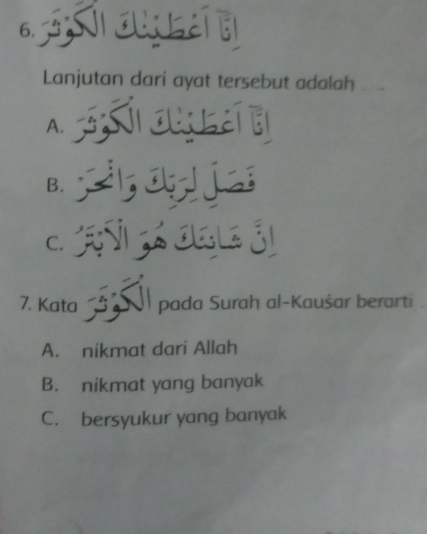 6. اِنَّآ اَعْطَيْنٰكَ الْكَوْثَرَ
Lanjutan dari ayat tersebut adalah ....
A. اِنَّآ اَعْطَيْنٰكَ الْكَوْثَرَ
B. فَصَلِّ لِرَبِّكَ وَانْحَرْ
C. اِنَّ شَانِئَكَ هُوَ الْاَبْتَرُ
7. Kata الْكَوْثَرَ pada Surah al-Kauśar berarti
A. nikmat dari Allah
B. nikmat yang banyak
C. bersyukur yang banyak